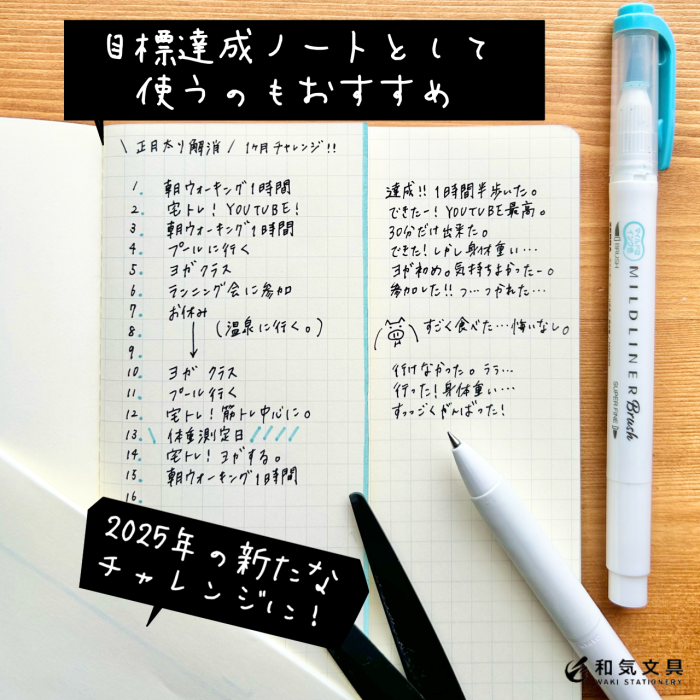 目標達成ノートとして
使うのもおすすめ
\ 正月太り解消 / 1ヶ月チャレンジ!!
1. 朝ウォーキング1時間
2. 宅トレ! YOUTUBE!
3. 朝ウォーキング1時間
4. プールに行く
5. ヨガクラス
6. ランニング会に参加
7. お休み
8. (温泉に行く。)
9.
10. ヨガ クラス
11. プール行く
12. 宅トレ! 筋トレ中心に。
13. 体重測定日
14. 宅トレ! ヨガする。
15. 朝ウォーキング1時間
16
達成!! 1時間半歩いた。
できたー! YOUTUBE最高。
30分だけ出来た。
できた! しかし身体重い…
ヨガ初め。気持ちよかったー。
参加した!! つ…つかれた…
すごく食べた…悔いなし。
行けなかった。ララ…
行った! 身体重い…
すっっごくがんばった!
2025年の新たな
チャレンジに!
BRUSH
マイルドライナー
MILDLINER
Brush
SUPER FINE
和気文具
WAKI STATIONERY